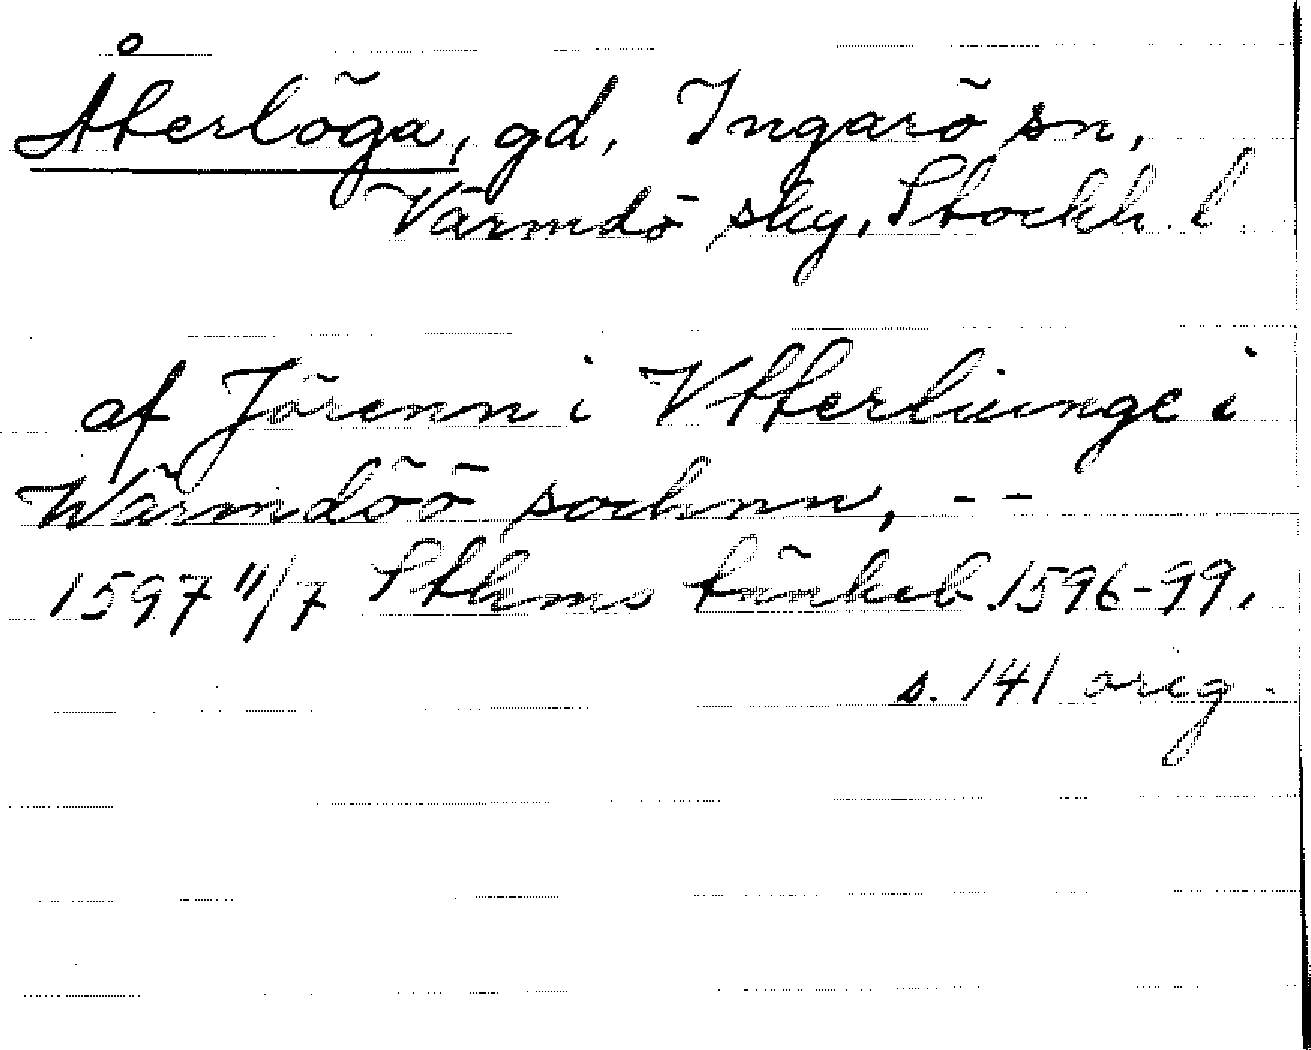 Återlöga, gd, Ingarö sn,
Värmdö sky, Stockh. l.
af Jörenn i Vtterliunge i
Wärmdöö sochnn, - -
1597 11/7 Sthms tänkeb 1596-99,
s. 141 orig.